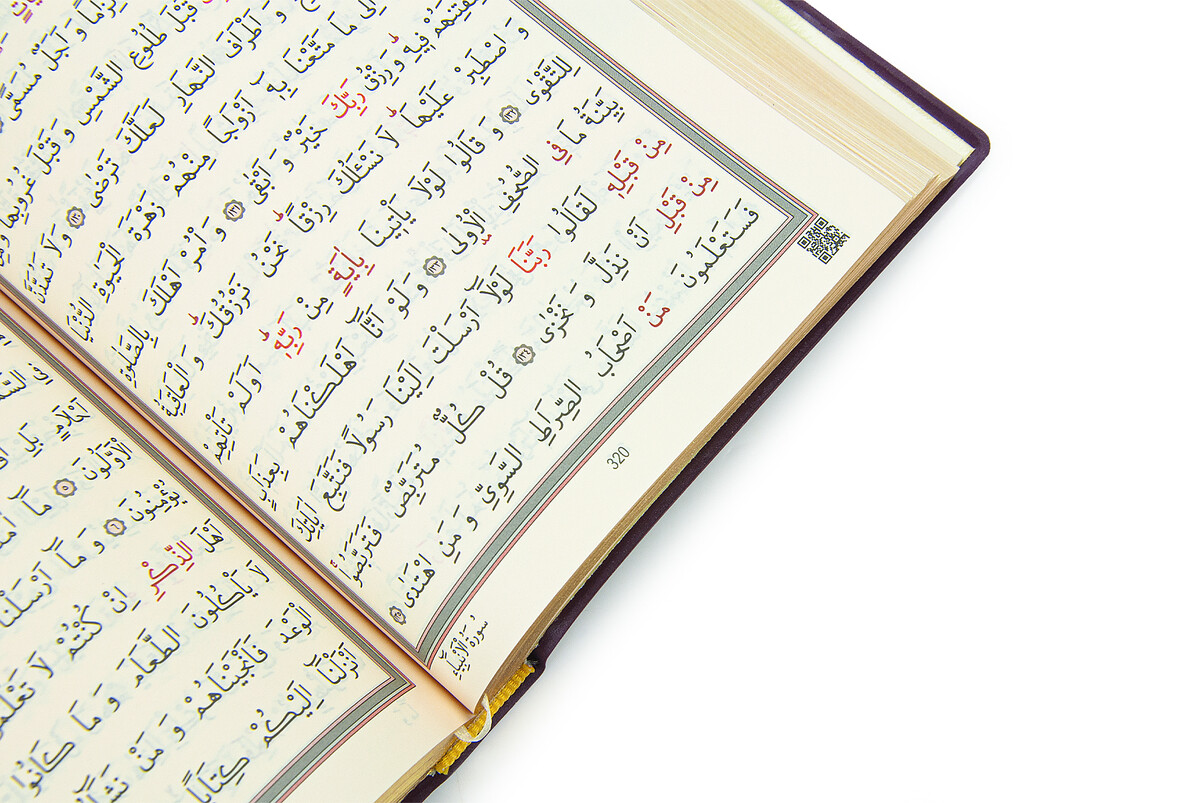 لِزَامًا وَ اَجَلٌ مُسَمًّى
قَبْلَ طُلُوعِ الشَّمْسِ وَ قَبْلَ غُرُوبِهَا
وَ اَطْرَافَ النَّهَارِ لَعَلَّكَ تَرْضٰى ﴿١٣٠﴾ وَ لَا تَمُدَّنَّ
اِلٰى مَا مَتَّعْنَا بِهٖٓ اَزْوَاجًا مِنْهُمْ زَهْرَةَ الْحَيٰوةِ الدُّنْيَا
لِنَفْتِنَهُمْ فِيهِ وَ رِزْقُ رَبِّكَ خَيْرٌ وَ اَبْقٰى ﴿١٣١﴾ وَ أْمُرْ اَهْلَكَ بِالصَّلٰوةِ
وَ اصْطَبِرْ عَلَيْهَا لَا نَسْـَٔلُكَ رِزْقًا نَحْنُ نَرْزُقُكَ وَ الْعَاقِبَةُ
لِلتَّقْوٰى ﴿١٣٢﴾ وَ قَالُوا لَوْلَا يَأْتِينَا بِاٰيَةٍ مِنْ رَبِّهٖ اَوَلَمْ تَأْتِهِمْ
بَيِّنَةُ مَا فِي الصُّحُفِ الْاُولٰى ﴿١٣٣﴾ وَ لَوْ اَنَّٓا اَهْلَكْنَاهُمْ بِعَذَابٍ
مِنْ قَبْلِهٖ لَقَالُوا رَبَّنَا لَوْلَٓا اَرْسَلْتَ اِلَيْنَا رَسُولًا فَنَتَّبِعَ اٰيَاتِكَ
مِنْ قَبْلِ اَنْ نَذِلَّ وَ نَخْزٰى ﴿١٣٤﴾ قُلْ كُلٌّ مُتَرَبِّصٌ فَتَرَبَّصُوا
فَسَتَعْلَمُونَ مَنْ اَصْحَابُ الصِّرَاطِ السَّوِيِّ وَ مَنِ اهْتَدٰى ﴿١٣٥﴾
320
سُورَةُ الْاَنْبِيَاءِ
فِي
اَحْلَامٍ بَلِ
الْاَوَّلُونَ ﴿٥﴾ مَٓا
يُؤْمِنُونَ ﴿٦﴾ وَ مَٓا اَرْسَلْنَا
اَهْلَ الذِّكْرِ اِنْ كُنْتُمْ لَا
لَا يَأْكُلُونَ الطَّعَامَ وَ مَا كَانُوا
الْوَعْدَ فَاَنْجَيْنَاهُمْ وَ مَنْ
اَنْزَلْنَٓا اِلَيْكُمْ كِتَابًا